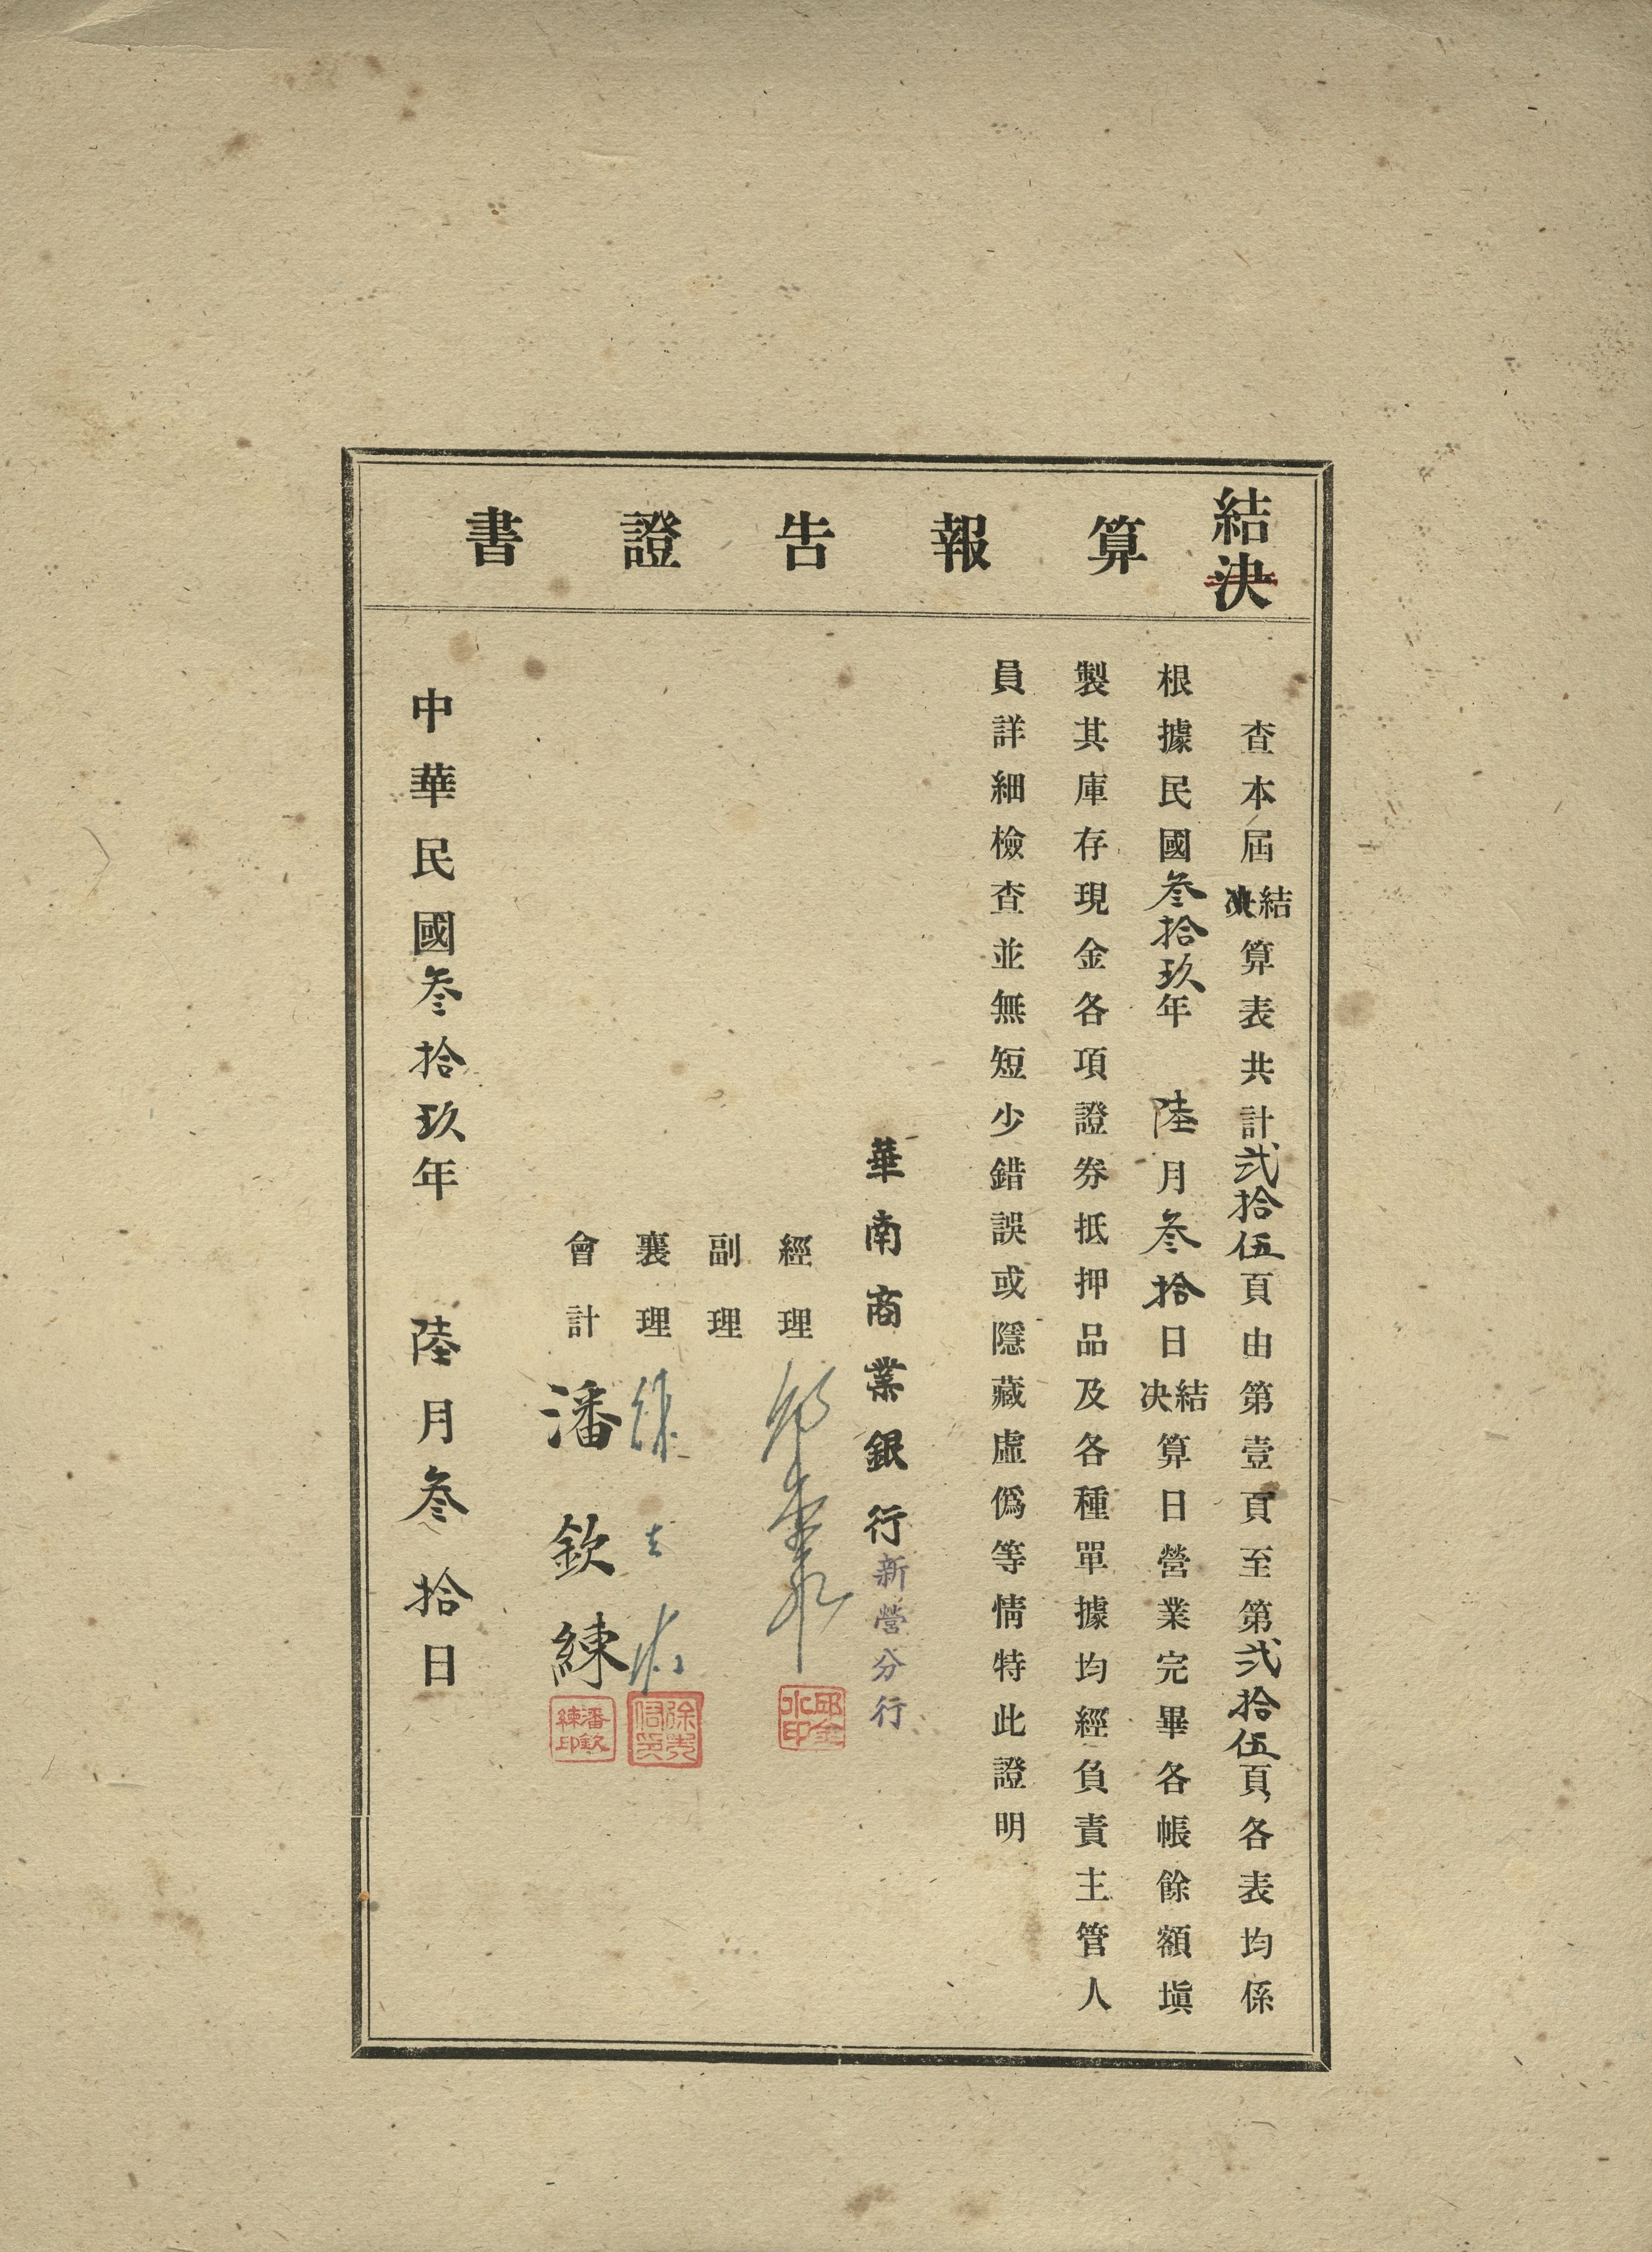 結決算報告證書
查本屆結決算表共計弍拾伍頁由第壹頁至第弍拾伍頁，各表均係
根據民國叁拾玖年 陸月叁拾日結決算日營業完畢各帳餘額塡
製其庫存現金各項證券抵押品及各種單據均經負責主管人
員詳細檢查並無短少錯誤或隱藏虛僞等情特此證明
華南商業銀行新營分行
經理
副理
襄理
會計 潘欽練
潘欽練印
中華民國叁拾玖年 陸月叁拾日